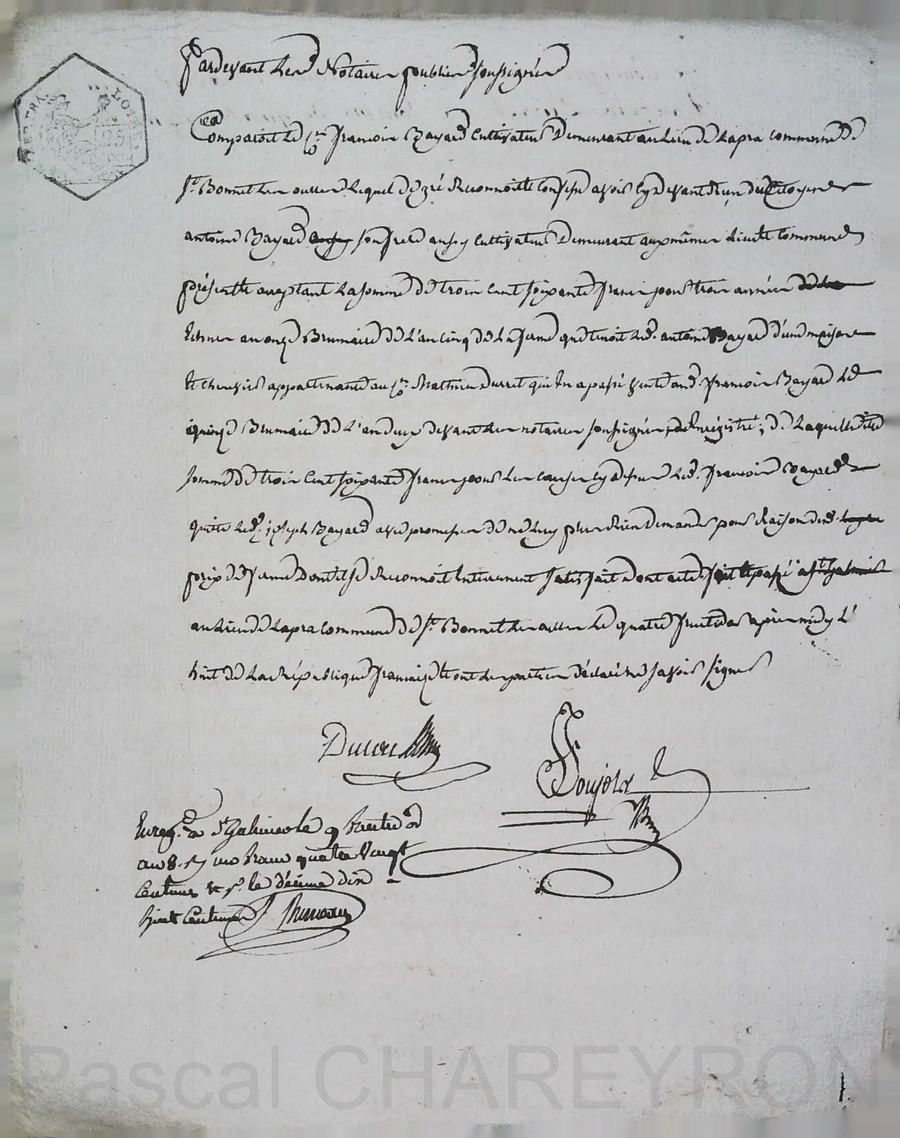 Pardevant les Notaires publics soussignés
Comparoit le Cen françois Bayard Cultivateur Demeurant au lieu de Lapra commune de
St. Bonnet les oulles Lequel de gré Reconnoit & Confesse avoir cy devant reçu du Citoyen
antoine Bayard son frere aussy Cultivateur Demeurant aux mêmes lieu & Commune
présent & acceptant La somme de trois Cent soixante francs pour trois années
Echues au onze Brumaire de L'an cinq de La ferme que tenoit led. antoine Bayard d'une maison
& chenevier appartenants au Cen Mathieu qui En a passé vente aud. françois Bayard Le
quinze Brumaire de L'an deux devant les notaires soussignés, Enregistré; de Laquelle dite
somme de trois Cent soixante francs pour les causes cy dessus led. françois Bayard
quitte led. joseph Bayard avec promesse de ne luy plus Rien Demander pour Raison dud.
prix de ferme dont il se Reconnoit Entierement satisfait dont acte fait & passé a St Galmier
au Lieu de Lapra commune de St. Bonnet les oulles Le quatre fructidor après midy L'
huit de La République françoise & ont les parties déclaré ne savoir signer
Poujol
Enreg. à St Galmier le 9 fructidor
an 8. Reçu un franc quatre vingt
Centimes & pr. le décime dix
huit Centimes
Pascal CHAREYRON